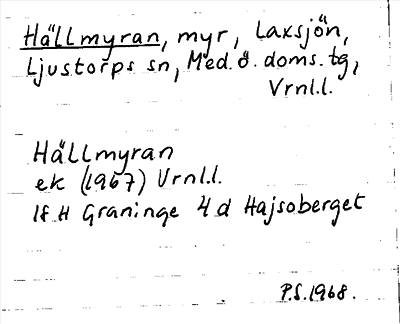 Hällmyran, myr, Laxsjön,
Ljustorps sn, Med. ö. doms. tg,
Vrnl.l.
Hällmyran
ek (1967) Vrnl.l.
If H Graninge 4 d Hajsoberget
P.S. 1968.